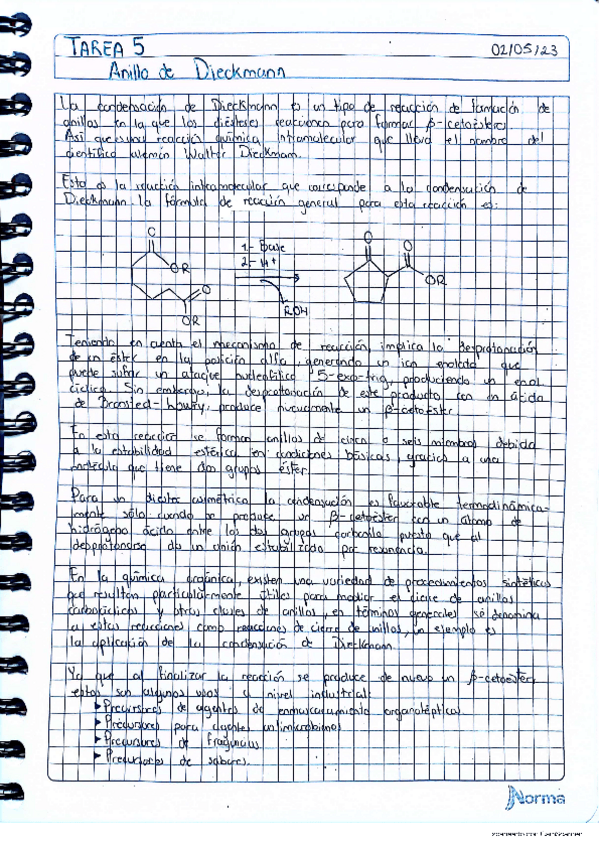 TAREA 5 02/05/23
Anillo de Dieckmann
La condensación de Dieckmann es un tipo de reacción de formación de
anillos en la que los diésteres reaccionan para formar β-cetoésteres
Así que es una reacción química intramolecular que lleva el nombre del
científico alemán Walter Dieckmann.
Esta es la reacción intramolecular que corresponde a la condensación de
Dieckmann la fórmula de reacción general para esta reacción es:
O
OR
O
OR
1- Base
2- H+
ROH
O
O
OR
Teniendo en cuenta el mecanismo de reacción, implica la desprotonación
de un éster en la posición alfa, generando un ion enolato que
puede sufrir un ataque nucleofílico 5-exo-trig, produciendo un enol
cíclico. Sin embargo, la desprotonación de este producto con un ácido
de Bronsted-Lowry, produce nuevamente un β-cetoéster
En esta reacción se forman anillos de cinco o seis miembros debido
a la estabilidad estérica en condiciones básicas, gracias a una
molécula que tiene dos grupos éster.
Para un diester asimétrico la condensación es favorable termodinámica-
mente sólo cuando se produce un β-cetoéster con un átomo de
hidrógeno ácido entre los dos grupos carbonilo puesto que al
desprotonarse da un anión estabilizado por resonancia.
En la química orgánica, existen una variedad de procedimientos sintéticos
que resultan particularmente útiles para mediar el cierre de anillos
carbocíclicos y otras clases de anillos, en términos generales se denomina
a estas reacciones como reacciones de cierre de anillos, un ejemplo es
la aplicación de la condensación de Dieckmann.
Ya que al finalizar la reacción se produce de nuevo un β-cetoéster
estos son algunos usos a nivel industrial:
➤Precursores de agentes de enmascaramiento organoléptico
➤Precursores para agentes antimicrobianos
➤Precursores de fragancias
➤Precursores de sabores.
Norma